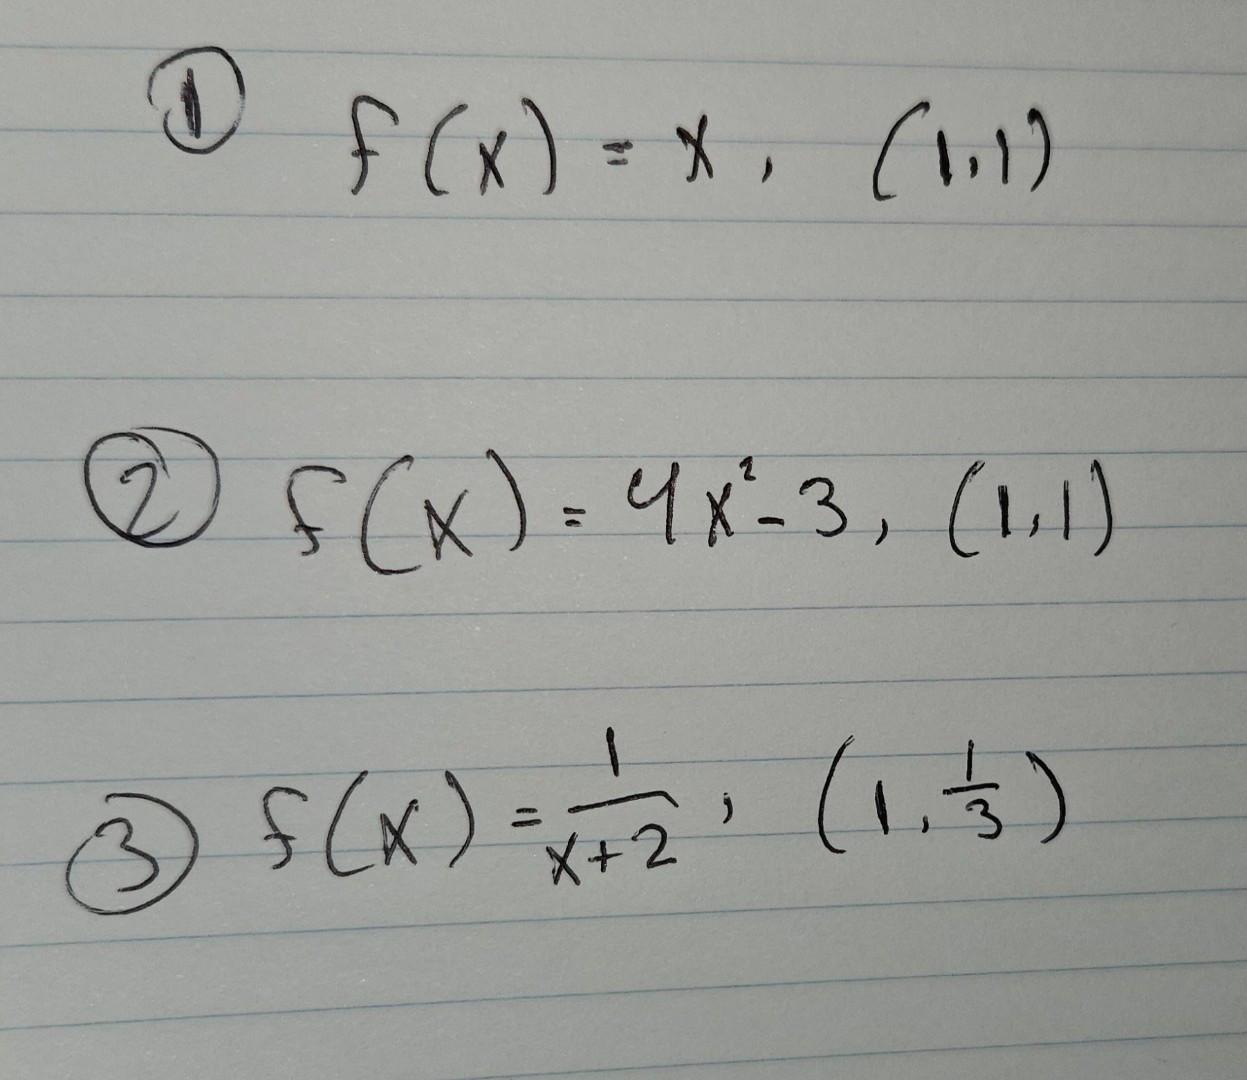 ① f(x) = x, (1,1)
② f(x) = 4x² - 3, (1,1)
③ f(x) = 1/(x+2), (1, 1/3)